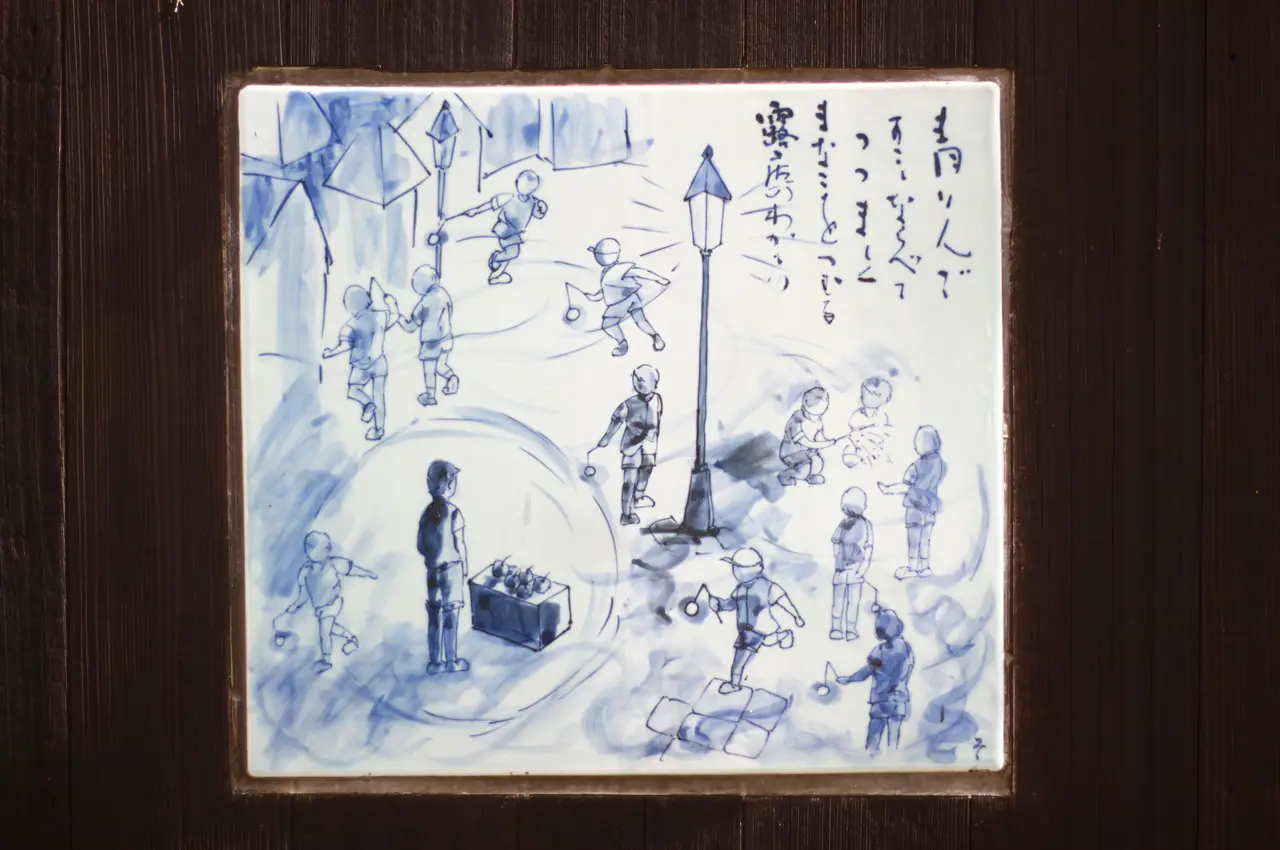 青りんご
すこしならべて
つつましく
まなこをつむる
露店のわかもの